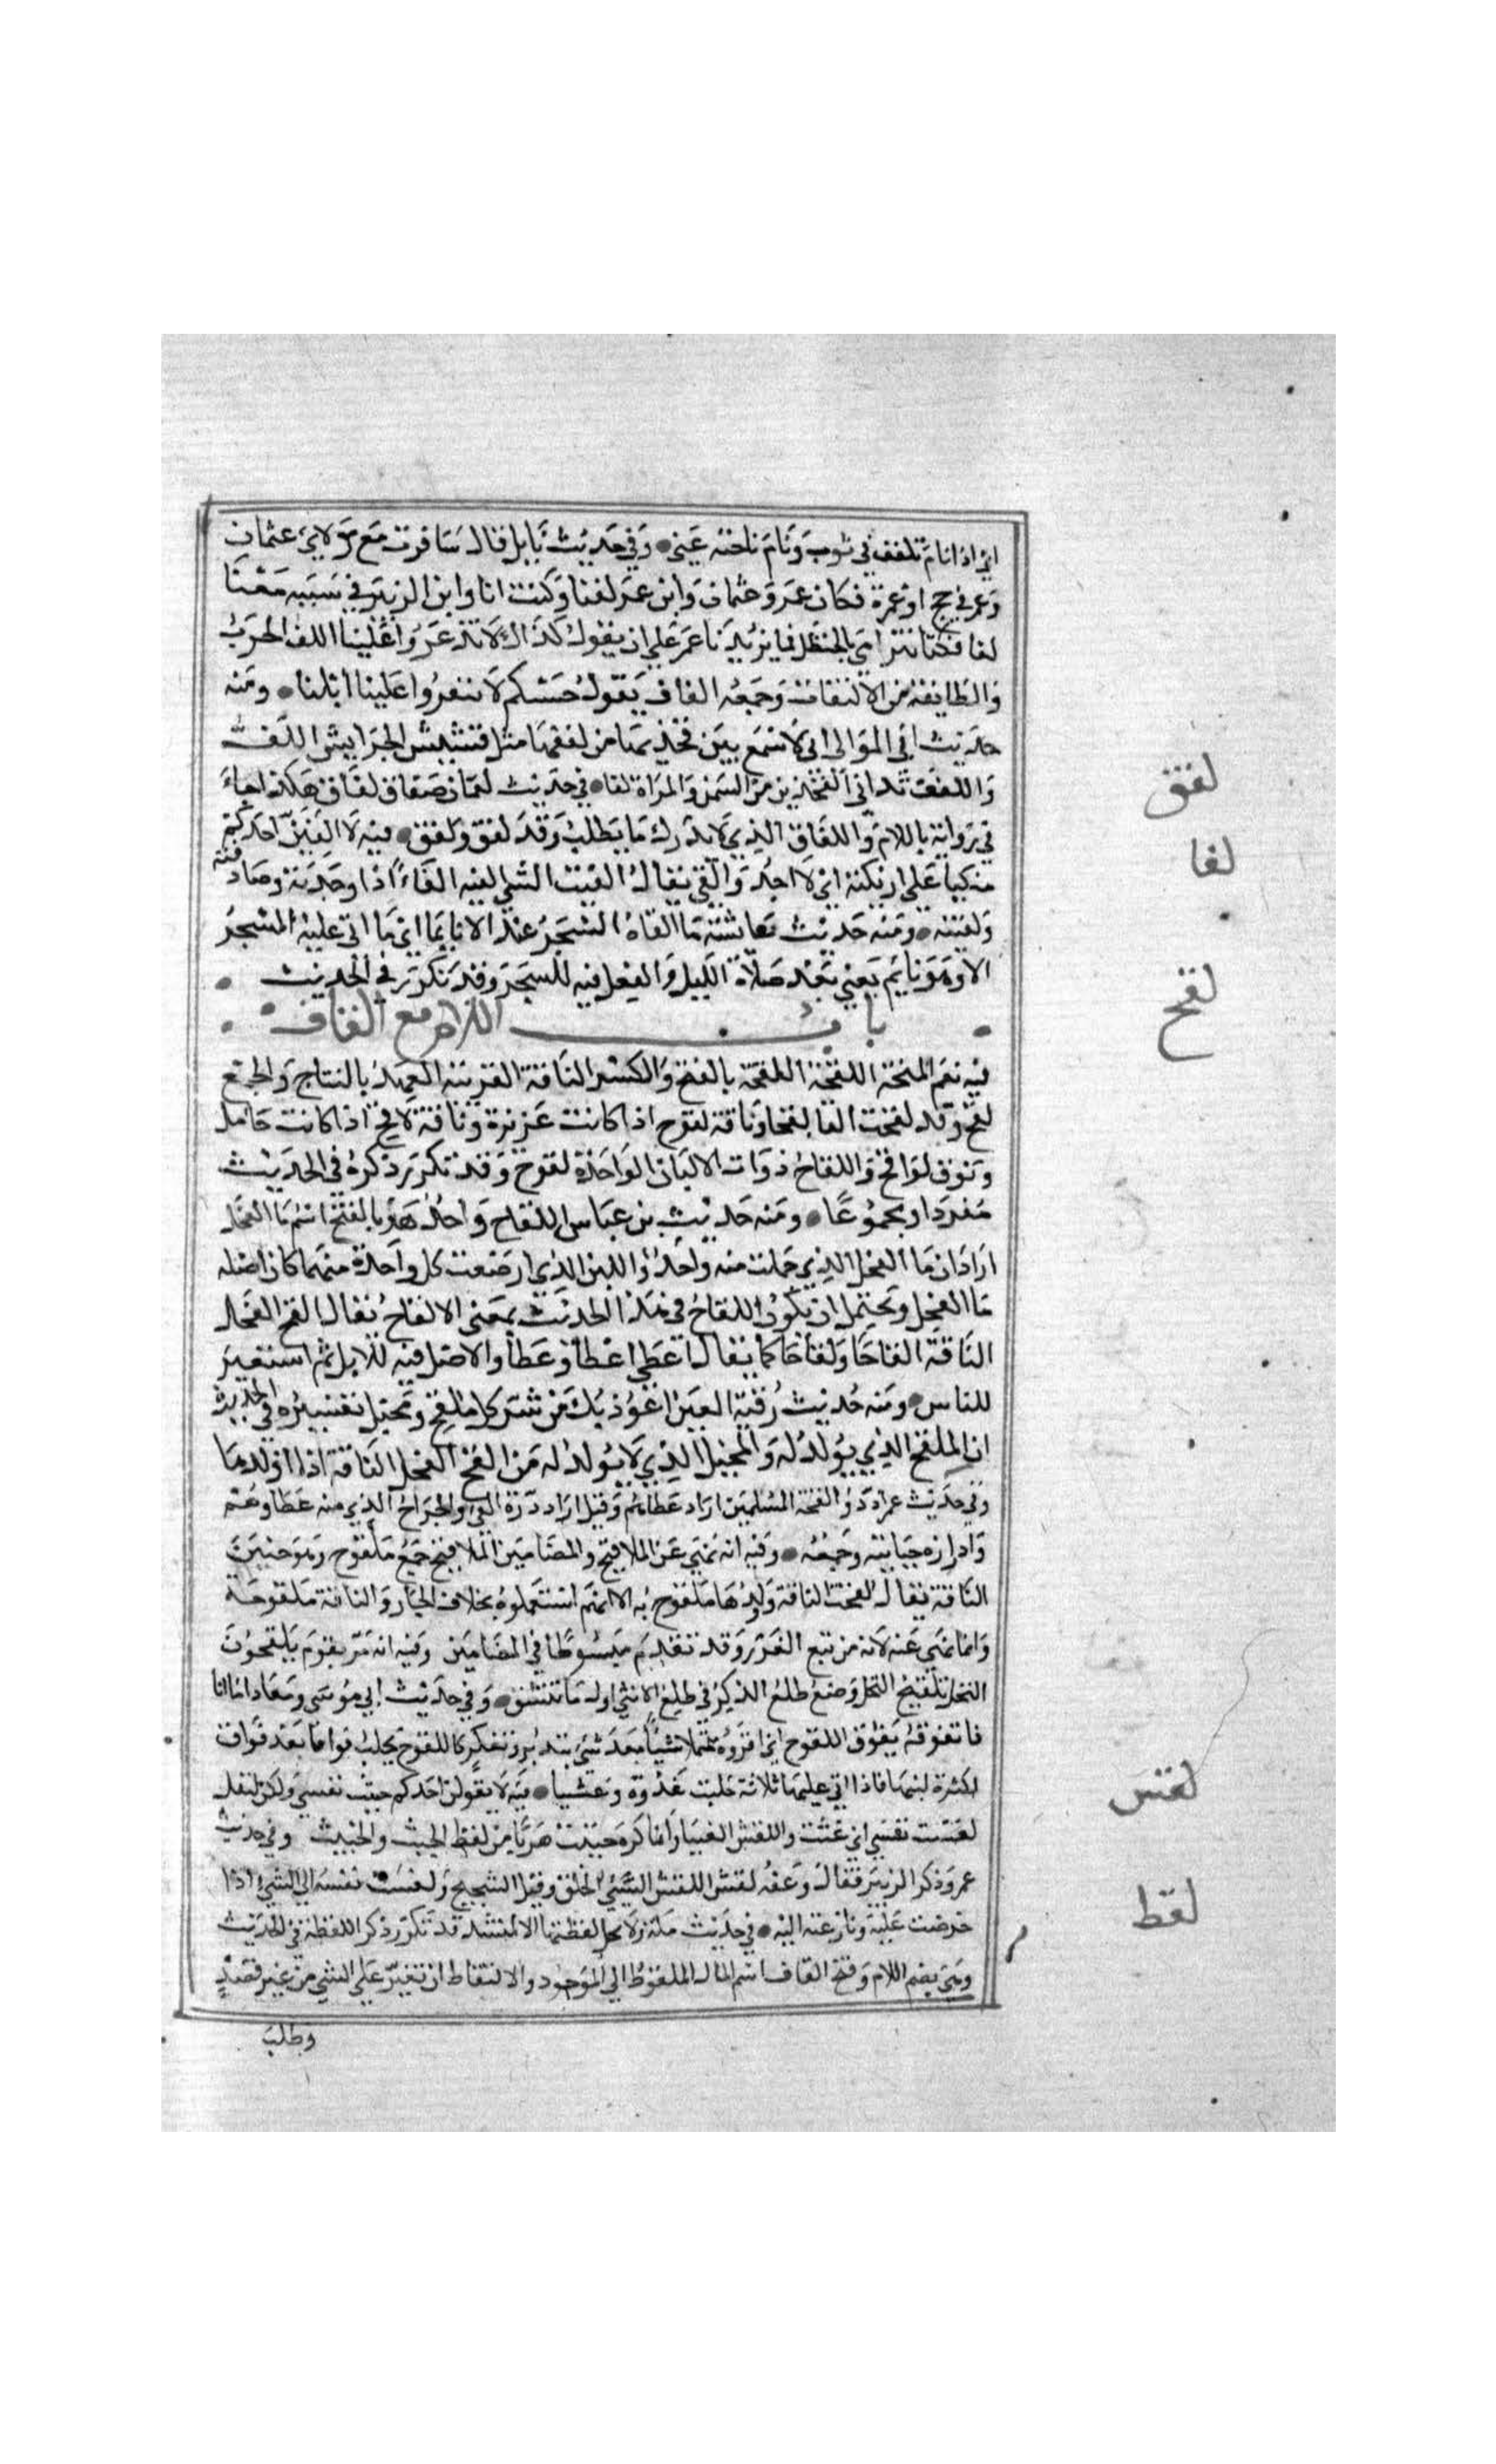 اي اذا نام تلفف في ثوب ونام ناحية عني وفي حديث نابل قال سافرت مع مولاي عثمان
وعمر في حج او عمرة فكان عمر وعثمان وابن عمر لفا وكنت انا وابن الزبير في شببة معنا
لفا فكنا نترامى بالحنظل فما يزيدنا عمر على ان يقول كذاك لا تذعروا علينا اللف الحزب
والطايفة من الالتفاف وجمعه الفاف يقول حسبكم لا تنفروا علينا ابلنا ومنه
حديث ابي الموالي اني لاسمع بين فخذيها من لففها مثل قشيش الحرابيش اللف
واللفف تداني الفخذين من السمن والمراة لفا في حديث لقمان صفاق لفاق هكذا جاء
في رواية باللام واللفاق الذي لا يدرك ما يطلب وقد لفق ولفق فيه لا الفين احدكم
متكيا على اريكته اي لا اجد والقي يقال الفيت الشي الفيه الفاء اذا وجدته وصادفته
ولقيته ومنه حديث عايشة ما الفاه السحر عندي الا نايما اي ما اتى عليه السحر
الا وهو نايم يعني بعد صلاة الليل والفعل فيه للسحر وقد تكرر في الحديث
باب اللام مع القاف
فيه نعم المنحة اللقحة اللقحة بالفتح والكسر الناقة القريبة العهد بالنتاج والجمع
لقح وقد لقحت لقحا ولقاحا وناقة لقوح اذا كانت غزيرة وناقة لاقح اذا كانت حاملا
ونوق لواقح واللقاح ذوات الالبان الواحدة لقوح وقد تكرر ذكره في الحديث
مفردا ومجموعا ومنه حديث بن عباس اللقاح واحد هو بالفتح اسم ما الفحل
اراد ان ما الفحل الذي حملت منه واحد واللبن الذي ارضعت كل واحدة منهما كان اصله
ما الفحل ويحتمل ان يكون اللقاح في هذا الحديث بمعنى الالقاح يقال القح الفحل
الناقة القاحا ولقاحا كما يقال اعطى اعطا وعطا والاصل فيه للابل ثم استعير
للناس ومنه حديث رقية العين اعوذ بك من شر كل ملقح ومحبل تفسيره في الحديث
ان الملقح الذي يولد له والمحبل الذي لا يولد له من القح الفحل الناقة اذا اولدها
وفي حديث عمر ادروا لقحة المسلمين اراد عطاهم وقيل اراد درة الفي والخراج الذي منه عطاوهم
وادراره جبايته وجمعه وفيه انه نهى عن الملاقيح والمضامين الملاقيح جمع ملقوح وهو جنين
الناقة يقال لقحت الناقة وولدها ملقوح به الا انهم استعملوه بحذف الجار والناقة ملقوحة
وانما نهي عنه لانه من بيع الغرر وقد تقدم مبسوطا في المضامين وفيه انه مر بقوم يلقحون
النخل تلقيح النخل وضع طلع الذكر في طلع الانثى اول ما تنشق وفي حديث ابي موسى ومعاذ اما انا
فاتفوقه تفوق اللقوح اي اقراه متمهلا شيا بعد شي بتدبر وتفكر كاللقوح تحلب فواقا بعد فواق
لكثرة لبنها فاذا اتى عليها ثلاثة حلبت غدوة وعشيا فيه لا يقولن احدكم خبثت نفسي ولكن ليقل
لقست نفسي اي غثت واللقس الغثيان وانما كره خبثت هربا من لفظ الخبث والخبيث وفي حديث
عمر وذكر الزبير فقال وعقه لقس اللقس السيئ الخلق وقيل الشحيح ولقست نفسه الى الشي اذا
حرصت عليه ونازعته اليه في حديث مكة ولا تحل لقطتها الا لمنشد قد تكرر ذكر اللقطة في الحديث
وهي بضم اللام وفتح القاف اسم المال الملقوط اي الموجود والالتقاط ان تعثر على الشي من غير قصد
وطلب
لفق
لفا
لقح
لقس
لقط